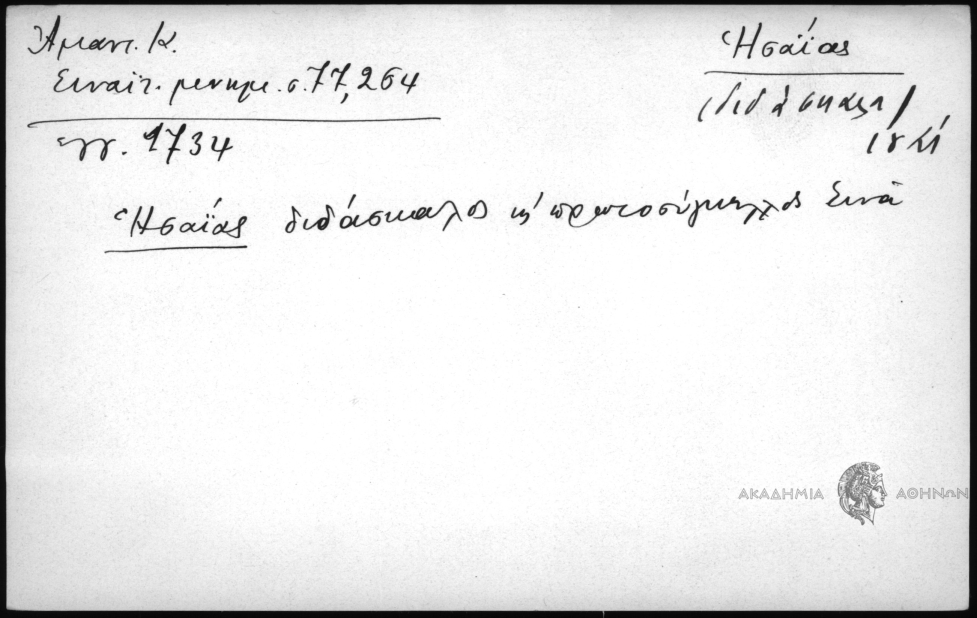 Ἀμαντ. Κ.
Σιναϊτ. μνημ. σ. 77, 254
ἔγγ. 1734
Ἡσαΐας
(διδάσκαλ)
Ἡσαΐας διδάσκαλος κ' πρωτοσύγκελλος Σινᾶ
ΑΚΑΔΗΜΙΑ ΑΘΗΝΩΝ